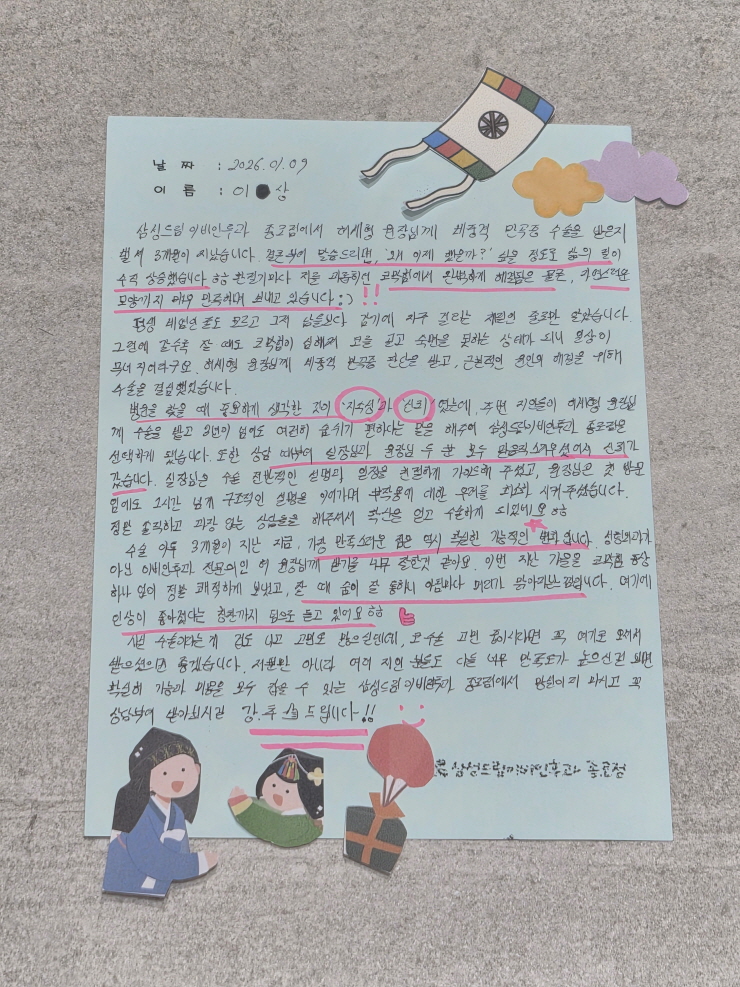 날 짜 : 2026.01.09
이 름 : 이 상
삼성드림이비인후과 종로점에서 허세형 원장님께 비중격 만곡증 수술을 받은지
벌써 3개월이 지났습니다. 결론부터 말씀드리면, '왜 이제 했을까?' 싶을 정도로 삶의 질이
수직 상승했습니다 ㅎㅎ 환절기마다 저를 괴롭히던 코막힘에서 완벽하게 해방됨은 물론, 자연스러운
모양까지 매우 만족하며 보내고 있습니다 :) !!
평생 비염인 줄도 모르고 그저 남들보다 감기에 자주 걸리는 체질인 줄로만 알았습니다.
그런데 갈수록 잘 때도 코막힘이 심해져 코를 골고 숙면을 못하는 상태가 되니 일상이
무너지더라구요. 허세형 원장님께 비중격 만곡증 진단을 받고, 근본적인 원인의 해결을 위해
수술을 결심했었습니다.
병원을 찾을 때 중요하게 생각한 것이 '지속성'과 '신뢰'였는데, 주변 지인들이 허세형 원장님
께 수술을 받고 2년이 넘어도 여전히 숨쉬기 편하다는 말을 해주어 삼성드림이비인후과 종로점을
선택하게 됐습니다. 또한 상담 때부터 실장님과 원장님 두 분 모두 믿음직스러우셔서 신뢰가
갔습니다. 실장님은 수술 전반적인 설명과 일정을 친절하게 가이드해 주셨고, 원장님은 첫 방문
임에도 1시간 넘게 구조적인 설명을 이어가며 부작용에 대한 우려를 최소화 시켜 주셨습니다.
정말 솔직하고 과장 없는 상담들을 해주셔서 확신을 얻고 수술하게 되었네요 ㅎㅎ
수술 이후 3개월이 지난 지금, 가장 만족스러운 점은 역시 확실한 기능적인 변화입니다. 성형외과가
아닌 이비인후과 전문의인 허 원장님께 받기를 너무 잘한것 같아요. 이번 지난 가을을 코막힘 증상
하나 없이 정말 쾌적하게 보냈고, 잘 때 숨이 잘 통하니 아침마다 머리가 맑아지는 느낌입니다. 여기에
인상이 좋아졌다는 칭찬까지 덤으로 듣고 있어요 ㅎㅎ
사실 수술이라는게 겁도 나고 고민도 많으실텐데, 코수술 고민 중이시라면 꼭 여기로 오셔서
받으셨으면 좋겠습니다. 저뿐만 아니라 여러 지인 분들도 다들 너무 만족도가 높으신걸 보면
확실히 기능과 미용을 모두 잡을 수 있는 삼성드림이비인후과 종로점에서 망설이지 마시고 꼭
상담부터 받아보시길 강.추.를 드립니다!!
삼성드림이비인후과 종로점